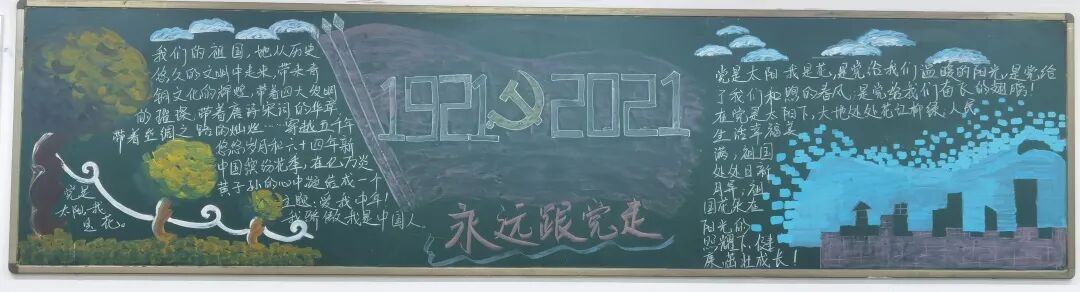 我们的祖国,她从历史
悠久的文明中走来,带来奇
铜文化的辉煌,带着四大发明
的璀璨,带着唐诗宋词的华章
带着丝绸之路的灿烂……穿越五千年
悠悠岁月和六十四年新
中国缤纷花季,在亿万炎
黄子孙的心中凝结成一个
主题:爱我中华!
我骄傲我是中国人。
党是
太阳,我
是花。
1921 2021
永远跟党走
党是太阳我是花,是党给我们温暖的阳光,是党给
了我们和煦的春风,是党给我们成长的翅膀!
在党是太阳下,大地处处花红柳绿,人民
生活幸福美
满,祖国
处处日新
月异,祖
国花朵在
阳光的
照耀下,健
康茁壮成长!